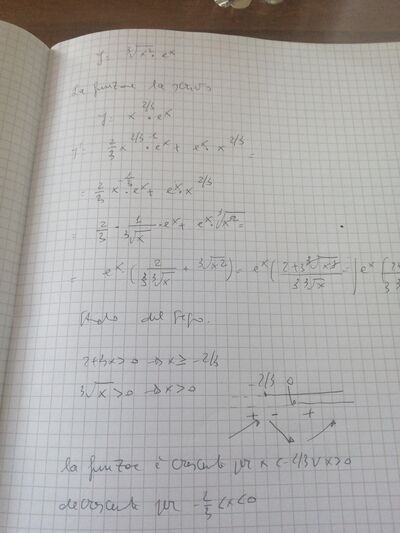 y = ∛x² · eˣ
La funzione la scrivo
y = x^{2/3} · eˣ
y' = 2/3 x^{2/3 - 1} · eˣ + eˣ · x^{2/3} =
= 2/3 x^{-1/3} · eˣ + eˣ · x^{2/3}
= 2/3 · 1/∛x · eˣ + eˣ · ∛x² =
= eˣ · (2/(3∛x) + ∛x²) = eˣ (2+3∛x³/(3∛x)) = eˣ (2+
Studio del segno.
2+3x>0 → x ≥ -2/3
∛x >0 → x>0
-2/3 0
+ - +
la funzione è crescente per x<-2/3 ∨ x>0
decrescente per -2/3 < x < 0